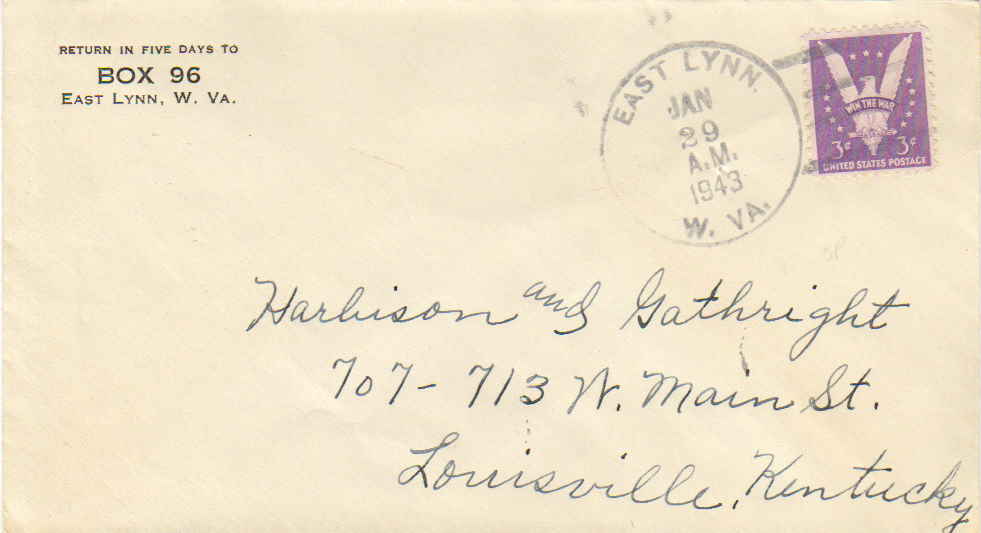 RETURN IN FIVE DAYS TO
BOX 96
EAST LYNN, W. VA.
EAST LYNN.
JAN
29
A.M.
1943
W. VA.
WIN THE WAR
3¢ 3¢
UNITED STATES POSTAGE
SP
Harbison and Gathright
707-713 W. Main St.
Louisville, Kentucky